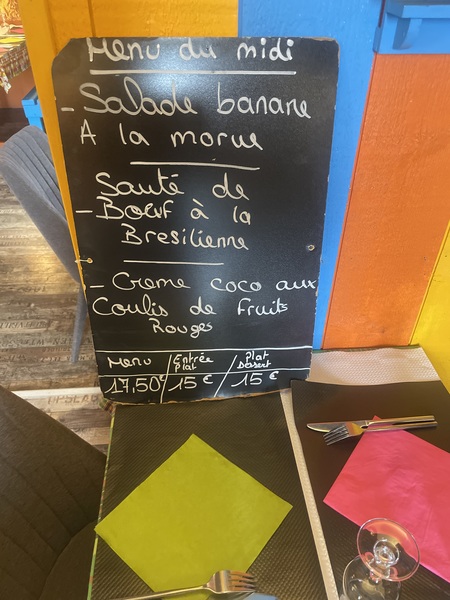 Menu du midi
- Salade banane
A la morue
Sauté de
- Bœuf à la
Bresilienne
- Creme coco aux
Coulis de Fruits
Rouges
Menu / Entrée Plat / Plat Dessert
17,50€ 15€ / 15€